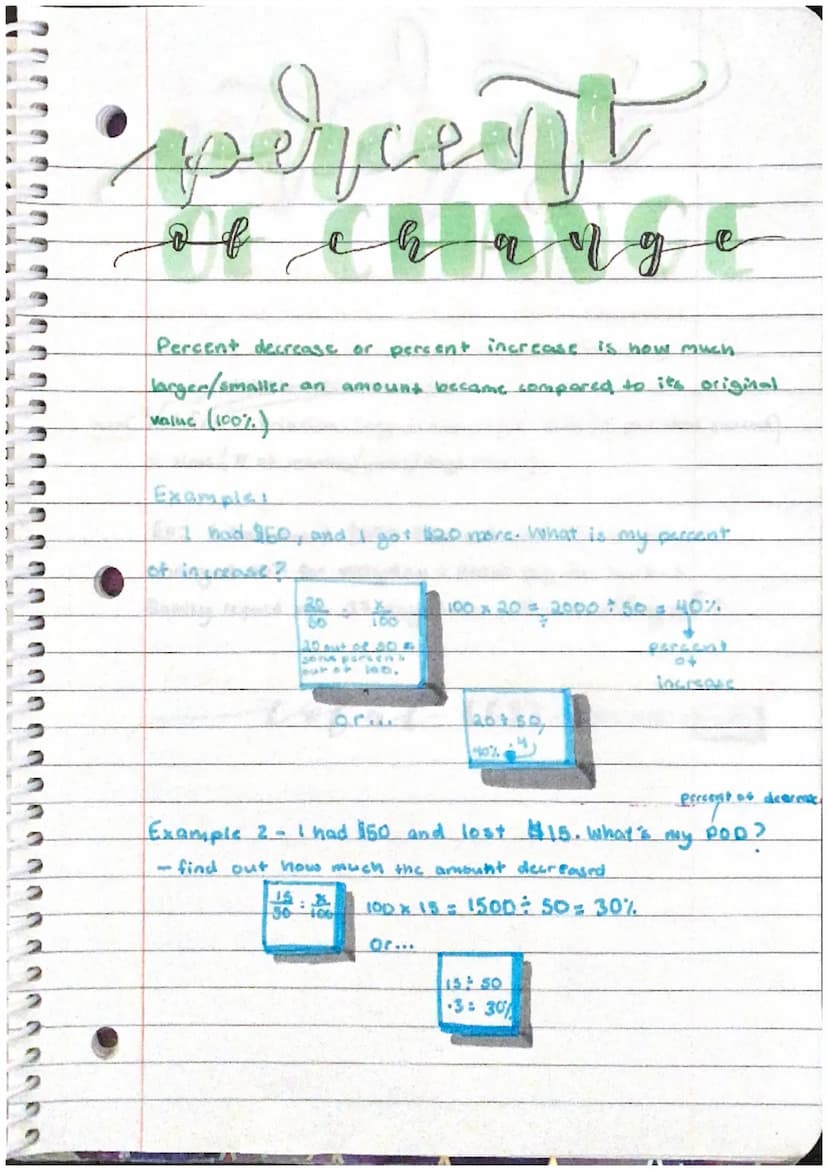 percent
of change
Percent decrease or percent increase is how much
larger/smaller an amount became compared to its original
value (100%)
Example:
I had $50, and I got $20 more. What is my percent
of increase?
20/50 : x/100
100 x 20 = 2000 ÷ 50 = 40%
20 out of 50 =
some percent
out of 100.
percent
of
increase
or...
20 ÷ 50,
40% .4
percent of decrease
Example 2 - I had $50 and lost $15. What's my POD?
- find out how much the amount decreased
15/50 : x/100
100 x 15 = 1500 ÷ 50 = 30%
or...
15 ÷ 50
.3 = 30%